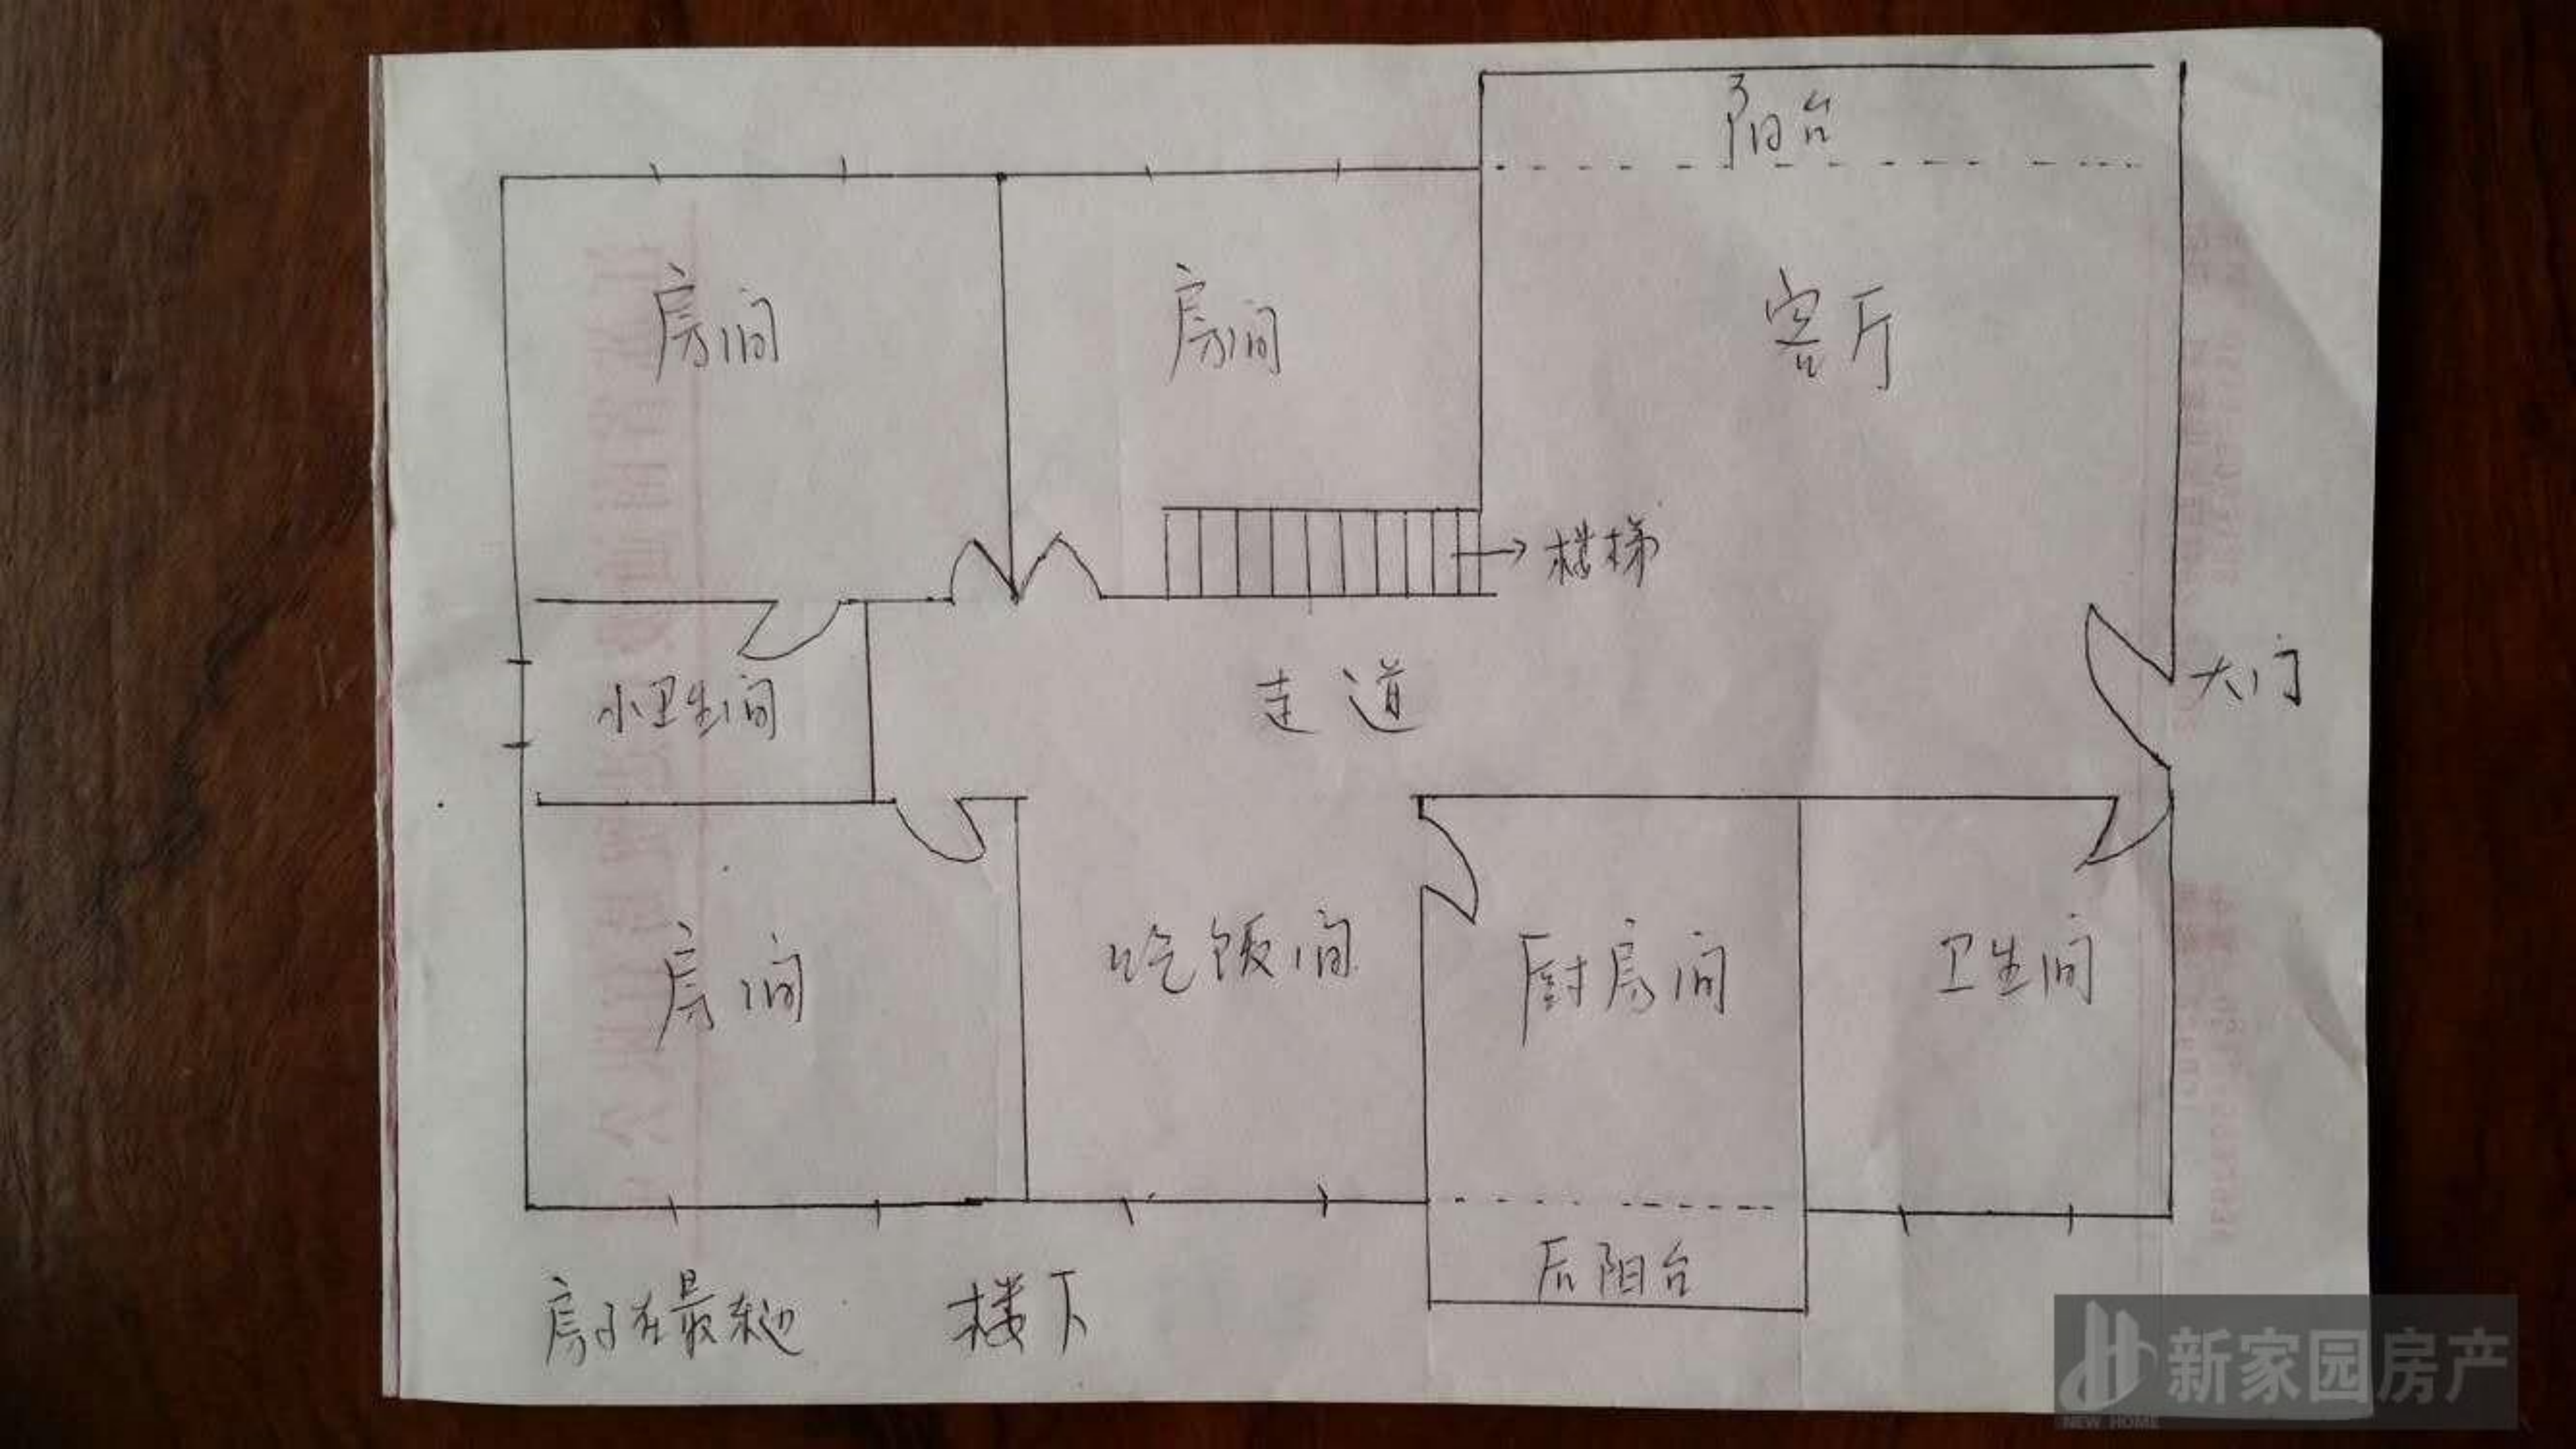 阳台
房间
房间
客厅
楼梯
小卫生间
走道
大门
房间
吃饭间
厨房间
卫生间
后阳台
房子在最东边
楼下
新家园房产
NEW HOME